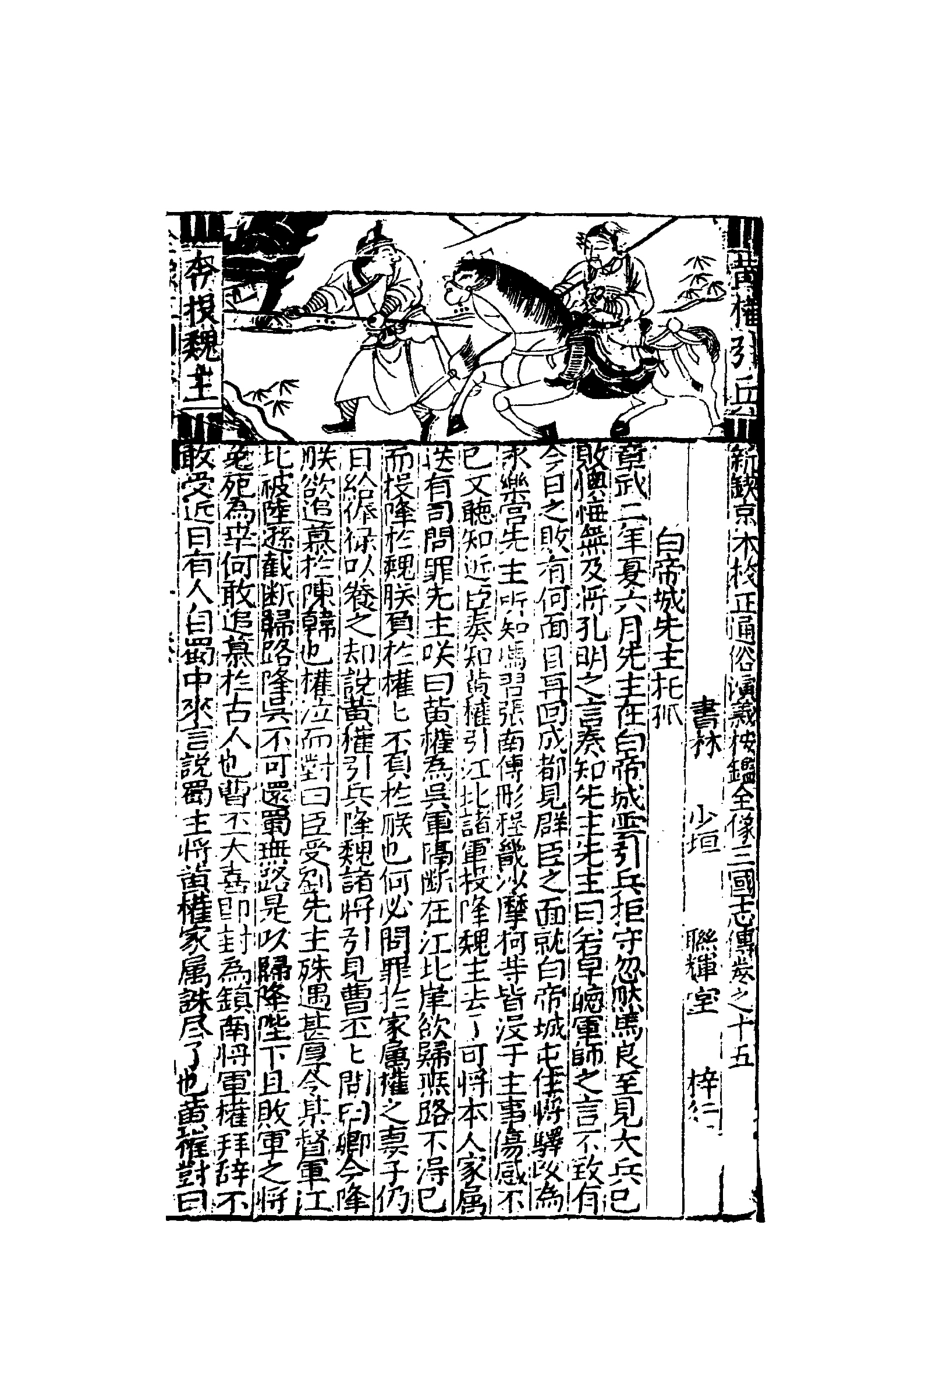 黄權引兵
奔投魏主
新鋟京本校正通俗演義按鑑全像三國志傳卷之十五
書林 少垣 聯輝堂 梓行
白帝城先主托孤
章武二年夏六月先主在白帝城雲引兵拒守忽然馬良至見大兵已
敗懊悔無及將孔明之言奏知先主先主曰若早聴軍師之言不致有
今日之敗有何面目再回成都見群臣之面就白帝城屯住將驛改為
永樂宫先主所知馮習張南傅彤程畿沙摩柯等皆没于主事傷感不
已又聴知近臣奏知黄權引江北諸軍投降魏主去了可將本人家属
送有司問罪先主咲曰黄權為吳軍隔断在江北岸欲歸無路不得已
而投降於魏朕負於權匕不負於朕也何必問罪於家属權之妻子仍
日給俸禄以養之却說黄權引兵降魏諸將引見曹丕匕問曰卿今降
朕欲追慕於陳韓也權泣而對曰臣受劉先主殊遇甚厚令某督軍江
北被陸遜截断歸路降吳不可還蜀無路是以歸降陛下且敗軍之將
免死為幸何敢追慕於古人也曹丕大喜即封為鎮南將軍權拜辞不
敢受近日有人自蜀中來言說蜀主將黄權家属誅尽了也黄權對曰